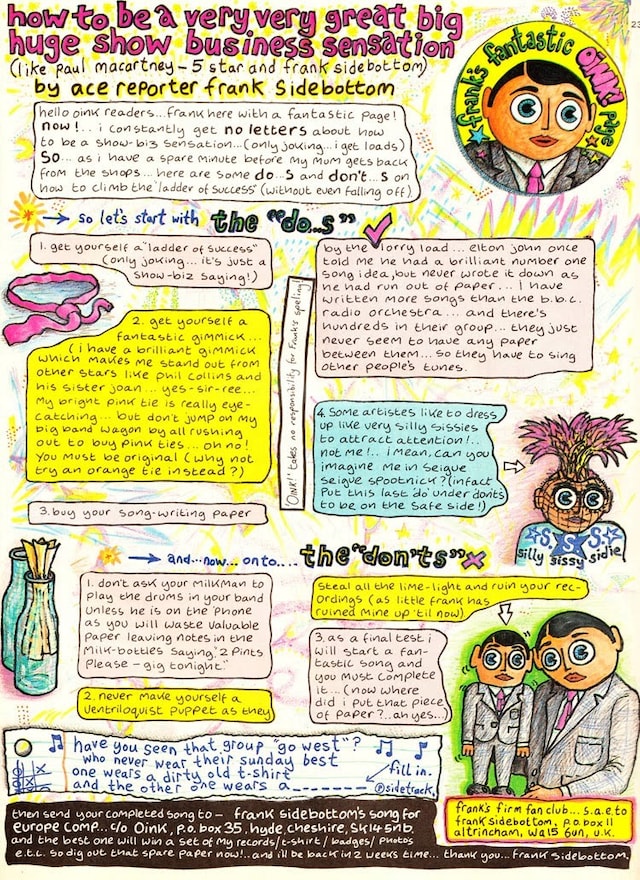 how to be a very very great big
huge show business sensation
(like paul macartney – 5 star and frank sidebottom)
by ace reporter frank sidebottom
23
frank's fantastic OINK! page
hello oink readers... frank here with a fantastic page!
now!.. i constantly get no letters about how
to be a show-biz sensation... (only joking... i get loads)
So... as i have a spare minute before my mum gets back
from the shops... here are some do...s and don't...s on
how to climb the "ladder of success" (without even falling off)
→ so let's start with the "do...s"
1. get yourself a "ladder of success"
(only joking... it's just a
show-biz saying!)
2. get yourself a
fantastic gimmick...
(i have a brilliant gimmick
which makes me stand out from
other stars like phil collins and
his sister joan... yes-sir-ree...
My bright pink tie is really eye-
catching... but don't jump on my
big band wagon by all rushing
out to buy pink ties... oh no!
You must be original (why not
try an orange tie instead?)
3. buy your song-writing paper
by the lorry load... elton john once
told me he had a brilliant number one
song idea, but never wrote it down as
he had run out of paper... I have
written more songs than the b.b.c.
radio orchestra... and there's
hundreds in their group... they just
never seem to have any paper
between them... so they have to sing
other people's tunes.
'OINK!' takes no responsibility for Frank's speling!
4. Some artistes like to dress
up like very silly sissies
to attract attention!..
not me!.. i mean, can you
imagine me in seigue
seigue spootnick? (infact
put this last 'do' under don'ts
to be on the safe side!)
S. S. S.
silly sissy sidie
→ and...now...onto.... the "don'ts" x
1. don't ask your milkman to
play the drums in your band
unless he is on the 'phone
as you will waste valuable
paper leaving notes in the
milk-bottles saying, "2 pints
please – gig tonight"
2. never make yourself a
ventriloquist puppet as they
steal all the lime-light and ruin your rec-
ordings (as little frank has
ruined mine up 'til now)
3. as a final test i
will start a fan-
tastic song and
you must complete
it... (now where
did i put that piece
of paper?..ah yes...)
have you seen that group "go west"?
who never wear their sunday best
one wears a dirty old t-shirt
and the other one wears a _ _ _ _ _ _ _
fill in.
©sidetrack.
then send your completed song to – frank sidebottom's song for
europe comp... c/o Oink, p.o. box 35, hyde, cheshire, SK14 5nb.
and the best one will win a set of my records/t-shirt/badges/photos
e.t.c. so dig out that spare paper now!..and i'll be back in 2 weeks time... thank you... frank sidebottom.
frank's firm fan club... s.a.e. to
frank sidebottom, p.o box 11
altrincham, wa15 6un, u.k.